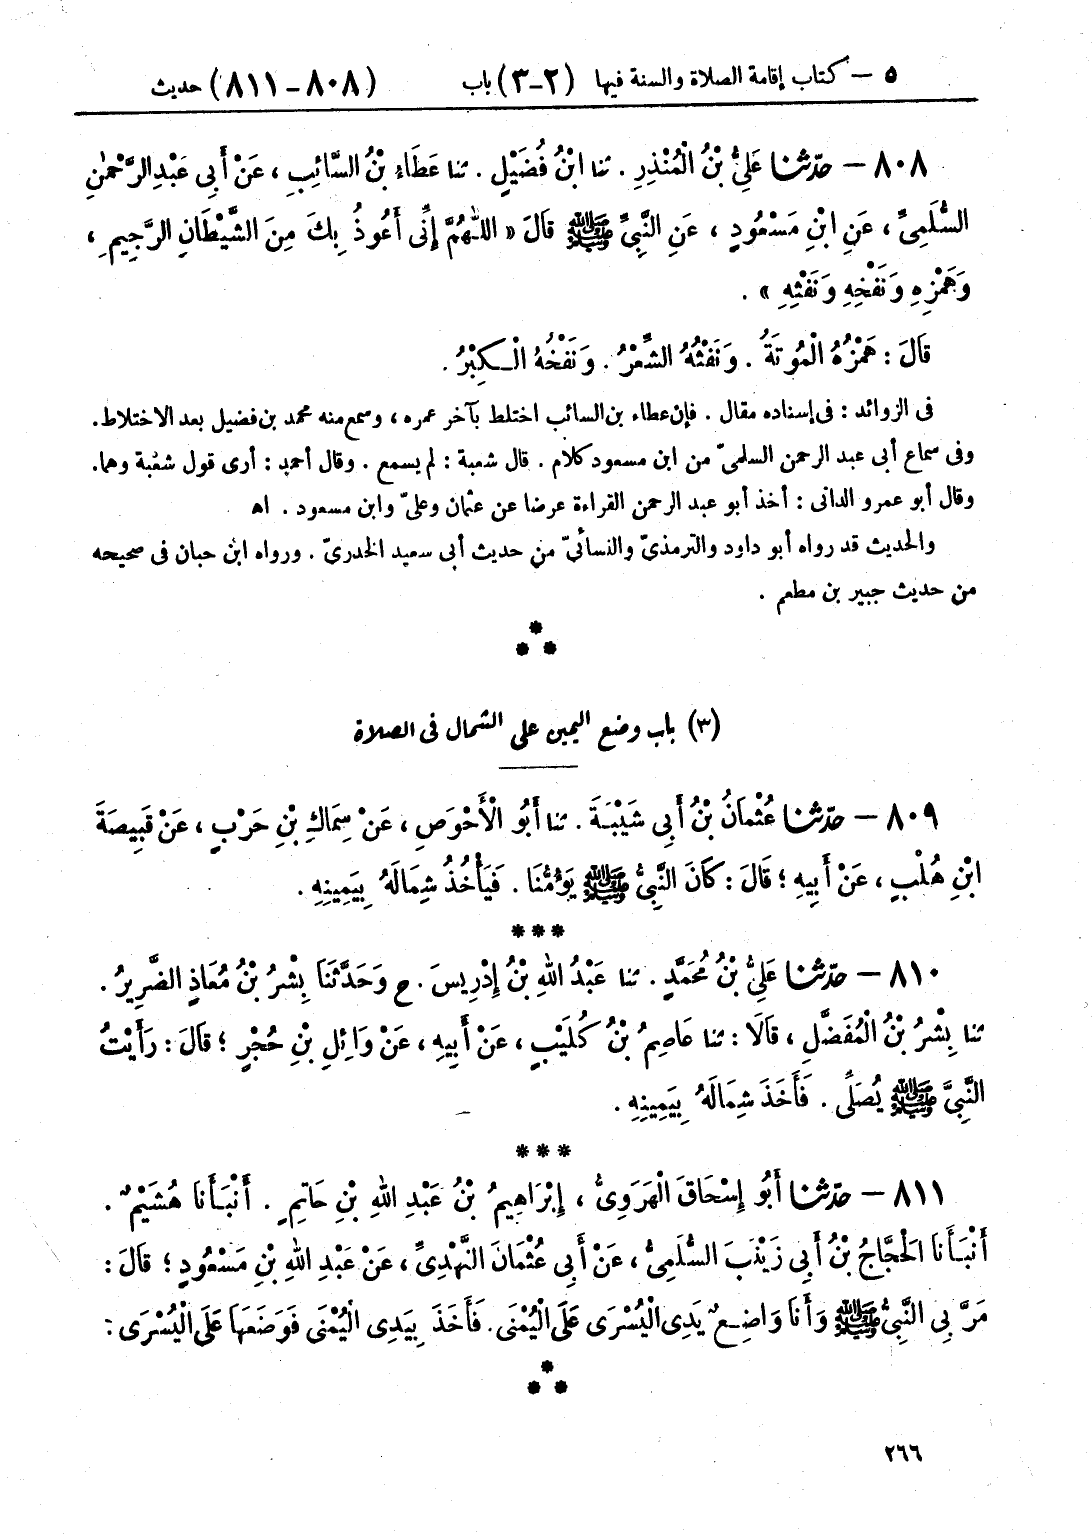 ٥ – كتاب إقامة الصلاة والسنة فيها (٢-٣) باب (٨٠٨-٨١١) حديث
٨٠٨ – حدّثنا عَلِيُّ بْنُ الْمُنْذِرِ . ثنا ابْنُ فُضَيْلٍ . ثنا عَطَاءُ بْنُ السَّائِبِ ، عَنْ أَبِي عَبْدِالرَّحْمٰنِ
السُّلَمِيِّ ، عَنِ ابْنِ مَسْعُودٍ ، عَنِ النَّبِيِّ ﷺ قَالَ « اللّٰهُمَّ إِنِّي أَعُوذُ بِكَ مِنَ الشَّيْطَانِ الرَّجِيمِ ،
وَهَمْزِهِ وَنَفْخِهِ وَنَفْثِهِ » .
قَالَ : هَمْزُهُ الْمُوتَةُ . وَنَفْثُهُ الشِّعْرُ . وَنَفْخُهُ الْكِبْرُ .
فى الزوائد : فى إسناده مقال . فإن عطاء بن السائب اختلط بآخر عمره ، وسمع منه محمد بن فضيل بعد الاختلاط .
وفى سماع أبى عبد الرحمن السلمىّ من ابن مسعود كلام . قال شعبة : لم يسمع . وقال أحمد : أرى قول شعبة وهما .
وقال أبو عمرو الدانى : أخذ أبو عبد الرحمن القراءة عرضا عن عثمان وعلىّ وابن مسعود . اه
والحديث قد رواه أبو داود والترمذىّ والنسائىّ من حديث أبى سعيد الخدرىّ . ورواه ابن حبان فى صحيحه
من حديث جبير بن مطعم .
*
* *
(٣) باب وضع اليمين على الشمال فى الصلاة
٨٠٩ – حدّثنا عُثْمَانُ بْنُ أَبِي شَيْبَةَ . ثنا أَبُو الْأَحْوَصِ ، عَنْ سِمَاكِ بْنِ حَرْبٍ ، عَنْ قَبِيصَةَ
ابْنِ هُلْبٍ ، عَنْ أَبِيهِ ؛ قَالَ : كَانَ النَّبِيُّ ﷺ يَؤُمُّنَا . فَيَأْخُذُ شِمَالَهُ بِيَمِينِهِ .
* * *
٨١٠ – حدّثنا عَلِيُّ بْنُ مُحَمَّدٍ . ثنا عَبْدُ اللهِ بْنُ إِدْرِيسَ . ح وَحَدَّثَنَا بِشْرُ بْنُ مُعَاذٍ الضَّرِيرُ .
ثنا بِشْرُ بْنُ الْمُفَضَّلِ ، قَالَا : ثنا عَاصِمُ بْنُ كُلَيْبٍ ، عَنْ أَبِيهِ ، عَنْ وَائِلِ بْنِ حُجْرٍ ؛ قَالَ : رَأَيْتُ
النَّبِيَّ ﷺ يُصَلِّي . فَأَخَذَ شِمَالَهُ بِيَمِينِهِ .
* * *
٨١١ – حدّثنا أَبُو إِسْحَاقَ الْهَرَوِيُّ ، إِبْرَاهِيمُ بْنُ عَبْدِ اللهِ بْنِ حَاتِمٍ . أَنْبَأَنَا هُشَيْمٌ .
أَنْبَأَنَا الْحَجَّاجُ بْنُ أَبِي زَيْنَبَ السُّلَمِيُّ ، عَنْ أَبِي عُثْمَانَ النَّهْدِيِّ ، عَنْ عَبْدِ اللهِ بْنِ مَسْعُودٍ ؛ قَالَ :
مَرَّ بِي النَّبِيُّ ﷺ وَأَنَا وَاضِعٌ يَدِي الْيُسْرَى عَلَى الْيُمْنَى . فَأَخَذَ بِيَدِي الْيُمْنَى فَوَضَعَهَا عَلَى الْيُسْرَى :
*
* *
٢٦٦